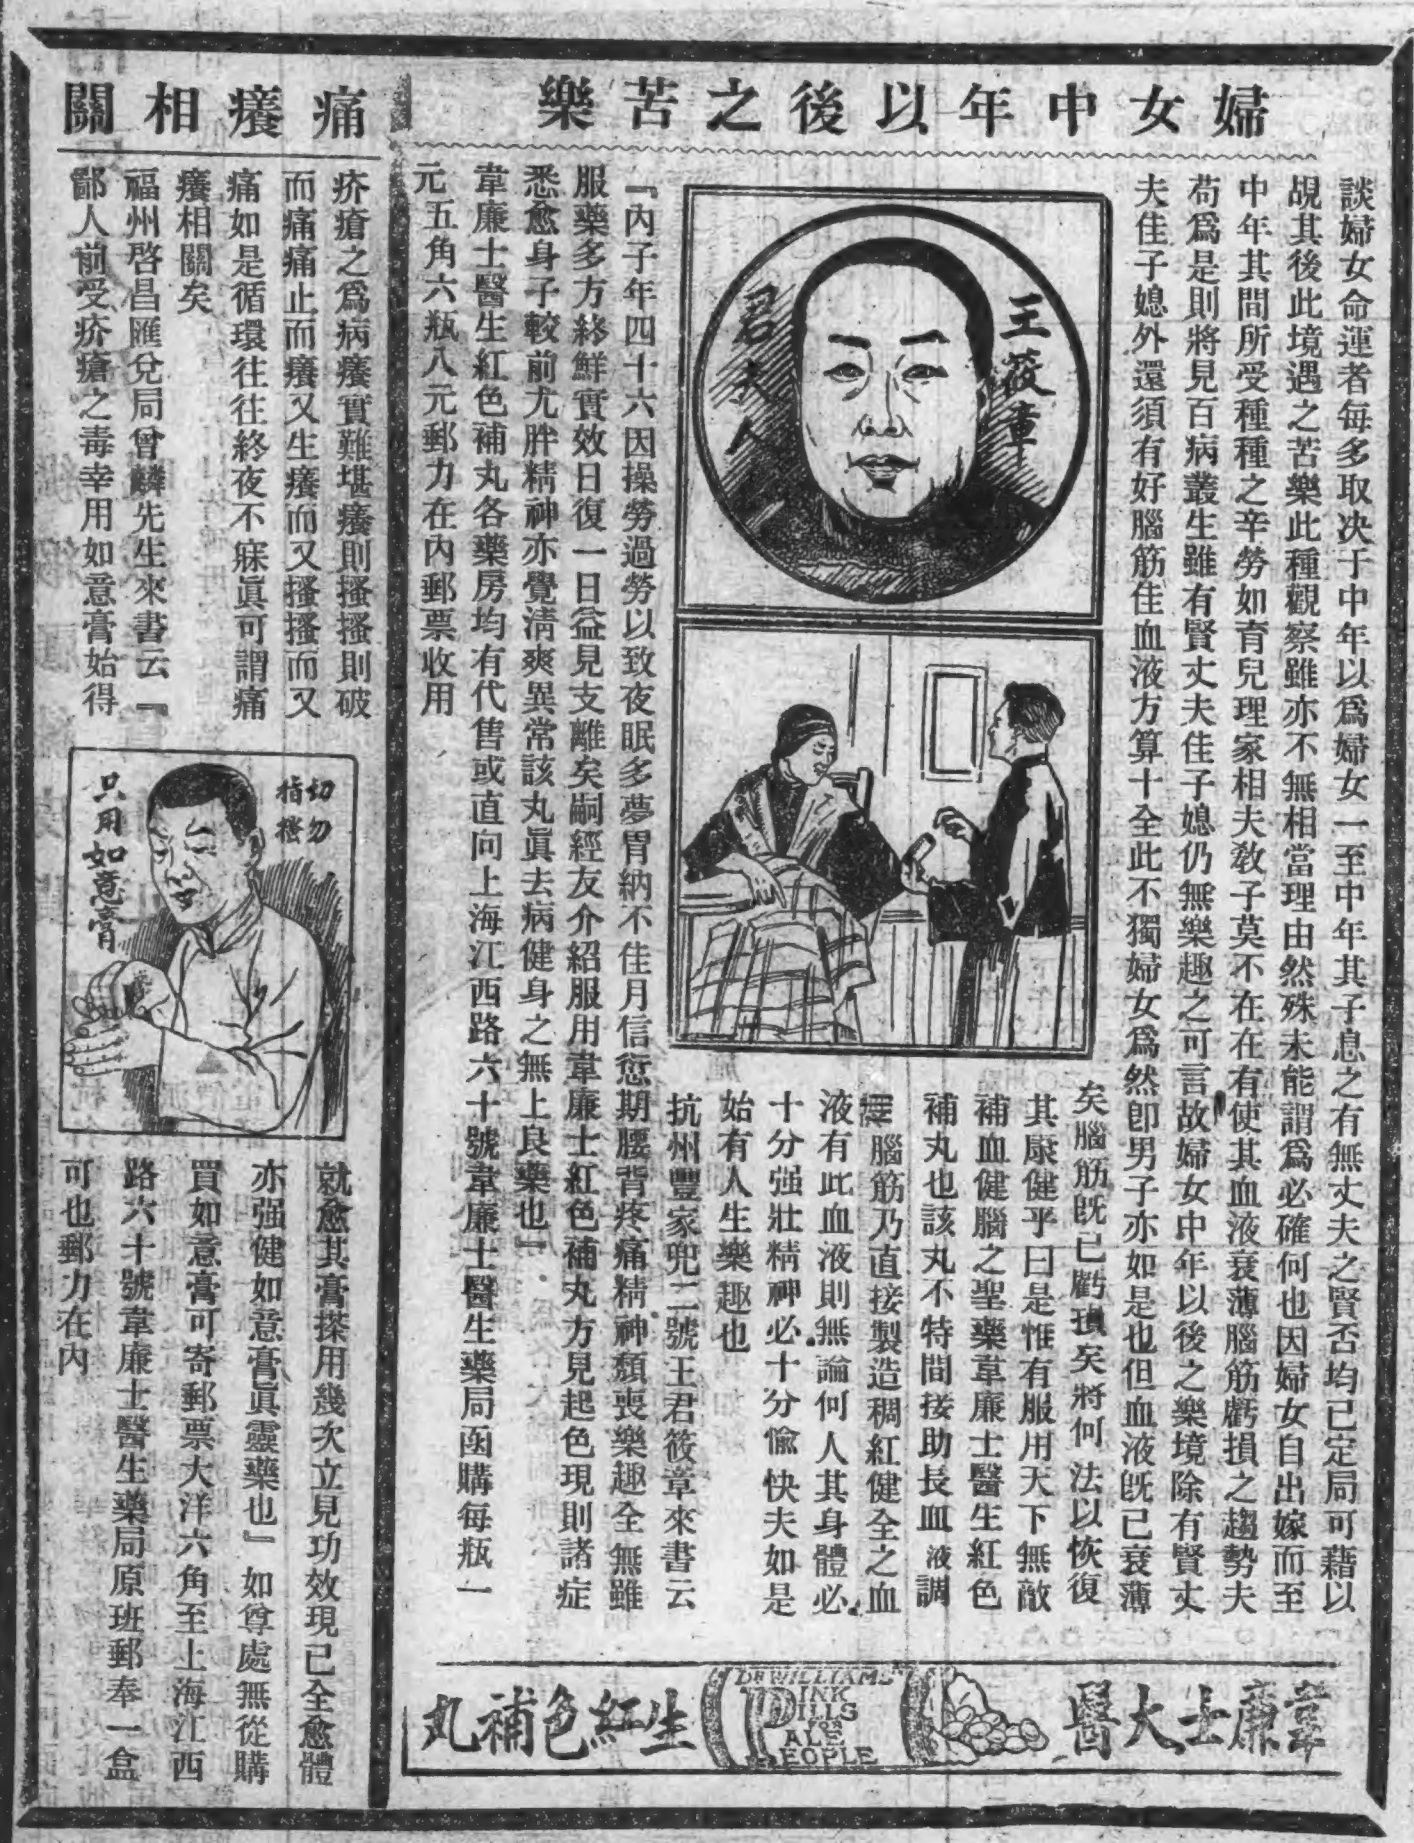 婦女中年以後之苦樂
談婦女命運者每多取决于中年以爲婦女一至中年其子息之有無丈夫之賢否均已定局可藉以
覘其後此境遇之苦樂此種觀察雖亦不無相當理由然殊未能謂爲必確何也因婦女自出嫁而至
中年其間所受種種之辛勞如育兒理家相夫敎子莫不在在有使其血液衰薄腦筋虧損之趨勢夫
苟爲是則將見百病叢生雖有賢丈夫佳子媳仍無樂趣之可言故婦女中年以後之樂境除有賢丈
夫佳子媳外還須有好腦筋佳血液方算十全此不獨婦女爲然卽男子亦如是也但血液旣已衰薄
矣腦筋旣已虧損矣將何法以恢復
其康健乎曰是惟有服用天下無敵
補血健腦之聖藥韋廉士醫生紅色
補丸也該丸不特間接助長血液調
腦筋乃直接製造稠紅健全之血
液有此血液則無論何人其身體必
十分强壯精神必十分愉快夫如是
始有人生樂趣也
抗州豐家兜二號王君筱章來書云
『內子年四十六因操勞過勞以致夜眠多夢胃納不佳月信愆期腰背疼痛精神頹喪樂趣全無雖
服藥多方終鮮實效日復一日益見支離矣嗣經友介紹服用韋廉士紅色補丸方見起色現則諸症
悉愈身子較前尤胖精神亦覺淸爽異常該丸眞去病健身之無上良藥也』
韋廉士醫生紅色補丸各藥房均有代售或直向上海江西路六十號韋廉士醫生藥局函購每瓶一
元五角六瓶八元郵力在內郵票收用
王筱章
君夫人
韋廉士大醫
DR WILLIAMS'
PINK
PILLS
FOR
PALE
PEOPLE
生紅色補丸
痛癢相關
疥瘡之爲病癢實難堪癢則搔搔則破
而痛痛止而癢又生癢而又搔搔而又
痛如是循環往往終夜不寐眞可謂痛
癢相關矣
福州啓昌匯兌局曾麟先生來書云『
鄙人前受疥瘡之毒幸用如意膏始得
切勿
指搔
只用如意膏
就愈其膏搽用幾次立見功效現已全愈體
亦强健如意膏眞靈藥也』如尊處無從購
買如意膏可寄郵票大洋六角至上海江西
路六十號韋廉士醫生藥局原班郵奉一盒
可也郵力在內